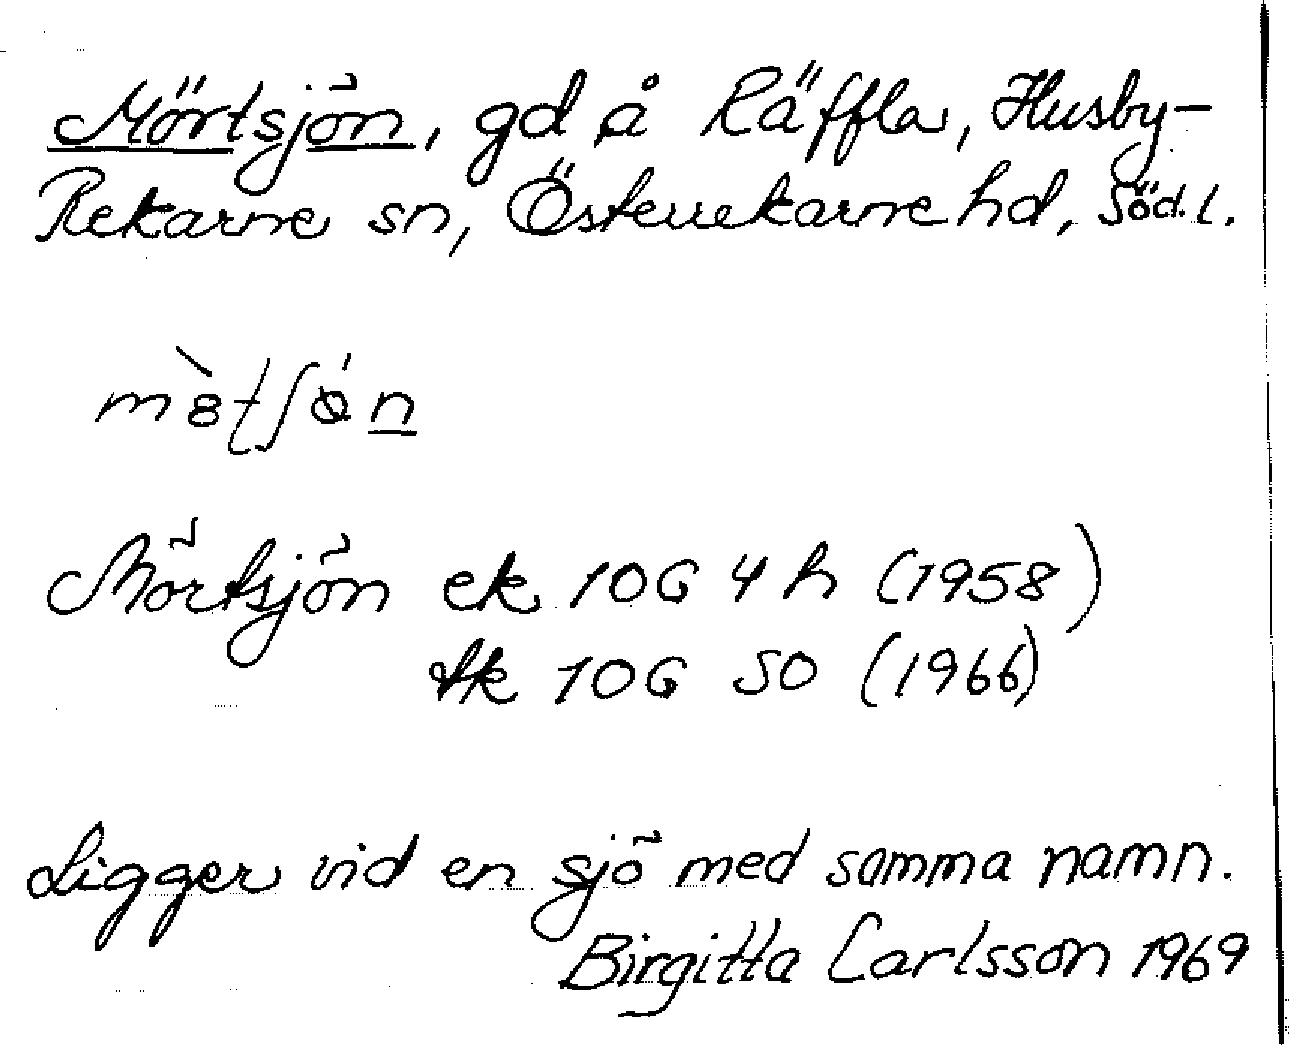 Mörtsjön, gd å Räffla, Husby-
Rekarne sn, Österrekarne hd, Söd. l.
Mörtsjön ek 10G 4h (1958)
tk 10G SO (1966)
Ligger vid en sjö med samma namn.
Birgitta Carlsson 1969